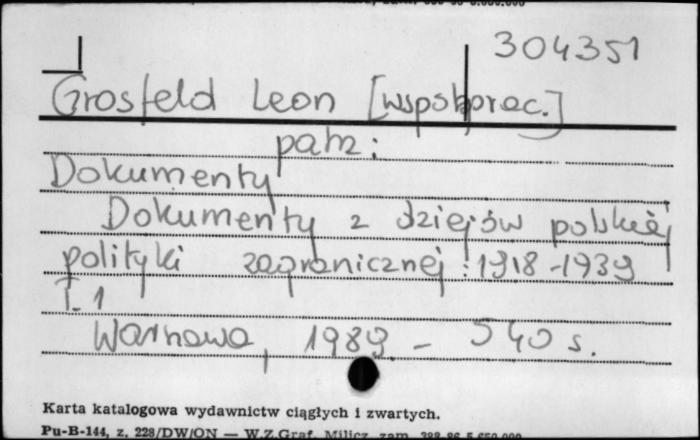 304351
Grosfeld Leon [współoprac.]
patrz:
Dokumenty
Dokumenty z dziejów polskiej
polityki zagranicznej : 1918-1939
T. 1
Warszawa, 1989. - 540 s.
Karta katalogowa wydawnictw ciągłych i zwartych.
Pu-B-144, z. 228/DW/ON — W.Z.Graf. Milicz, zam.